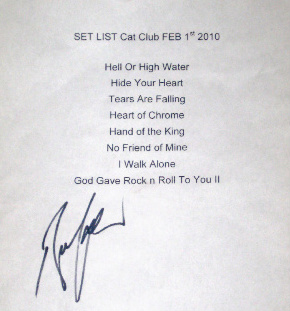 SET LIST Cat Club FEB 1st 2010
Hell Or High Water
Hide Your Heart
Tears Are Falling
Heart of Chrome
Hand of the King
No Friend of Mine
I Walk Alone
God Gave Rock n Roll To You II